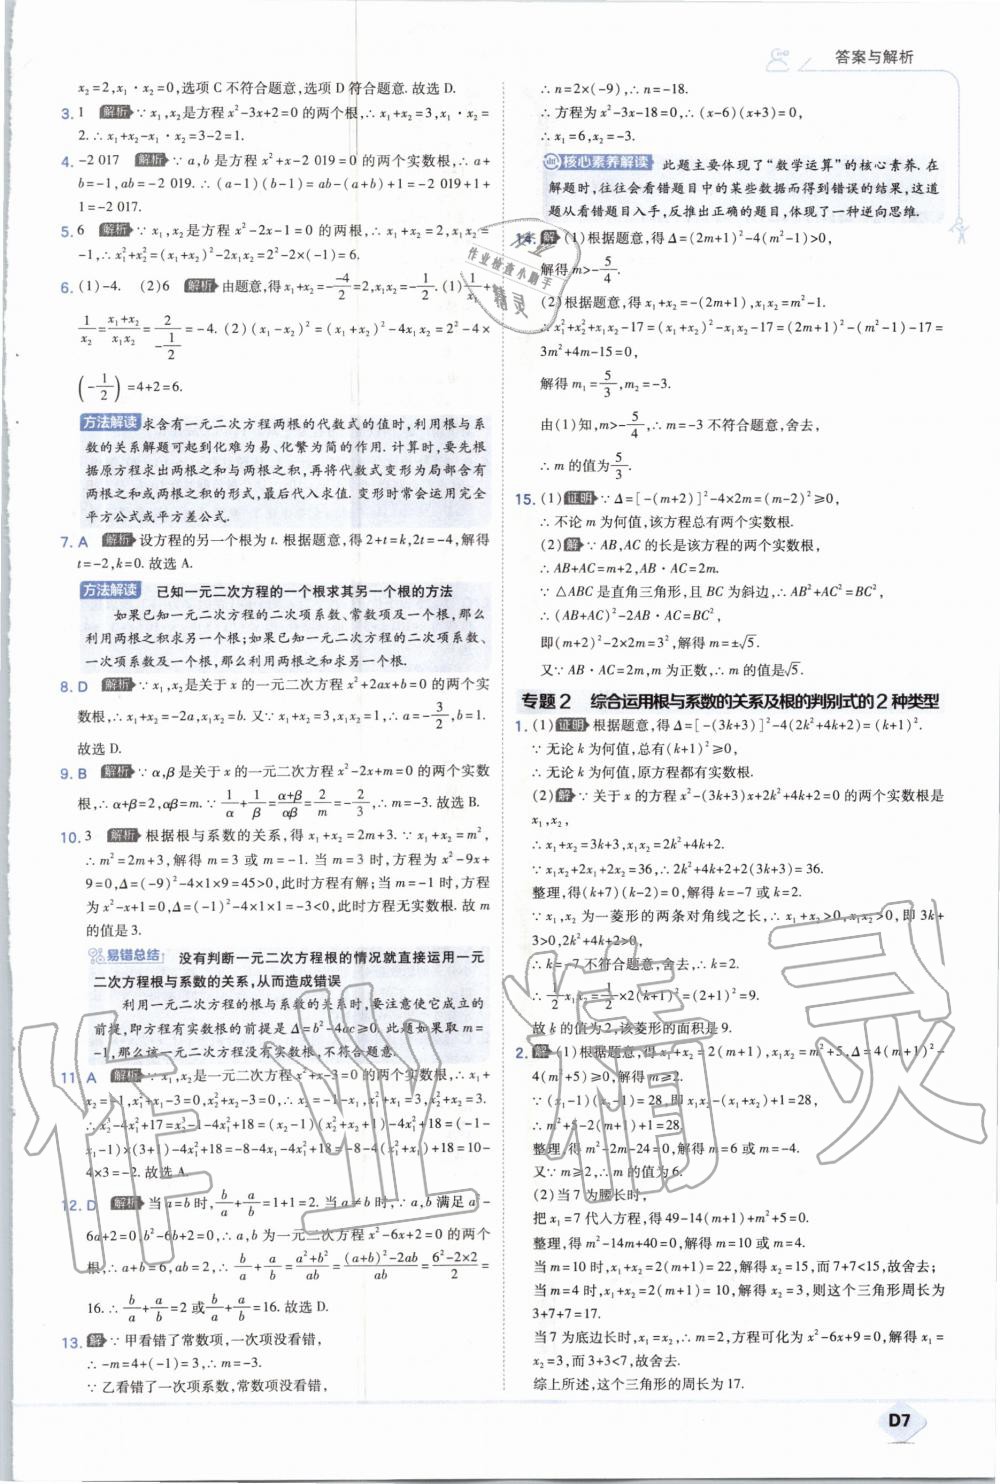 答案与解析
x₂=2,x₁·x₂=2,选项 C 不符合题意,选项 D 符合题意.故选 D.
3. 1 解析 ∵x₁,x₂是方程 x²-3x+2=0 的两个根,∴x₁+x₂=3,x₁·x₂=
2.∴x₁+x₂-x₁·x₂=3-2=1.
4. -2 017 解析 ∵a,b 是方程 x²+x-2 019=0 的两个实数根,∴a+
b=-1,ab=-2 019.∴(a-1)(b-1)=ab-(a+b)+1=-2 019+1+
1=-2 017.
5. 6 解析 ∵x₁,x₂是方程 x²-2x-1=0 的两根,∴x₁+x₂=2,x₁x₂=
-1,∴x₁²+x₂²=(x₁+x₂)²-2x₁x₂=2²-2×(-1)=6.
6. (1)-4. (2)6 解析 由题意,得 x₁+x₂=-(-4)/2=2,x₁x₂=-1/2.(1)1/x₁+
1/x₂=(x₁+x₂)/(x₁x₂)=2/(-1/2)=-4.(2)(x₁-x₂)²=(x₁+x₂)²-4x₁x₂=2²-4×
(-1/2)=4+2=6.
方法解读 求含有一元二次方程两根的代数式的值时,利用根与系
数的关系解题可起到化难为易、化繁为简的作用.计算时,要先根
据原方程求出两根之和与两根之积,再将代数式变形为局部含有
两根之和或两根之积的形式,最后代入求值.变形时常会运用完全
平方公式或平方差公式.
7. A 解析 设方程的另一个根为 t.根据题意,得 2+t=k,2t=-4,解得
t=-2,k=0.故选 A.
方法解读 已知一元二次方程的一个根求其另一个根的方法
如果已知一元二次方程的二次项系数、常数项及一个根,那么
利用两根之积求另一个根;如果已知一元二次方程的二次项系数、
一次项系数及一个根,那么利用两根之和求另一个根.
8. D 解析 ∵x₁,x₂是关于 x 的一元二次方程 x²+2ax+b=0 的两个实
数根,∴x₁+x₂=-2a,x₁x₂=b.又∵x₁+x₂=3,x₁x₂=1,∴a=-3/2,b=1.
故选 D.
9. B 解析 ∵α,β是关于 x 的一元二次方程 x²-2x+m=0 的两个实数
根,∴α+β=2,αβ=m.∵1/α+1/β=(α+β)/(αβ)=2/m=-2/3,∴m=-3.故选 B.
10. 3 解析 根据根与系数的关系,得 x₁+x₂=2m+3.∵x₁+x₂=m²,
∴m²=2m+3,解得 m=3 或 m=-1.当 m=3 时,方程为 x²-9x+
9=0,Δ=(-9)²-4×1×9=45>0,此时方程有解;当 m=-1 时,方程
为 x²-x+1=0,Δ=(-1)²-4×1×1=-3<0,此时方程无实数根.故 m
的值是 3.
易错总结 没有判断一元二次方程根的情况就直接运用一元
二次方程根与系数的关系,从而造成错误
利用一元二次方程的根与系数的关系时,要注意使它成立的
前提,即方程有实数根的前提是 Δ=b²-4ac≥0.此题如果取 m=
-1,那么该一元二次方程没有实数根,不符合题意.
11. A 解析 ∵x₁,x₂是一元二次方程 x²+x-3=0 的两个实数根,∴x₁+
x₂=-1,x₁²+x₁-3=0,x₂²+x₂-3=0,∴x₁²+x₁=3,x₂²+x₂=3.
∴x₂³-4x₁²+17=x₂³-1-4x₁²+18=(x₂-1)(x₂²+x₂+1)-4x₁²+18=(-1-
x₁-1)×(3+1)-4x₁²+18=-8-4x₁-4x₁²+18=-8-4(x₁²+x₁)+18=10-
4×3=-2.故选 A.
12. D 解析 当 a=b 时,b/a+a/b=1+1=2.当 a≠b 时,∵a,b 满足 a²-
6a+2=0,b²-6b+2=0,∴a,b 为一元二次方程 x²-6x+2=0 的两个
根,∴a+b=6,ab=2,∴b/a+a/b=(a²+b²)/ab=((a+b)²-2ab)/ab=(6²-2×2)/2=
16.∴b/a+a/b=2 或b/a+a/b=16.故选 D.
13. 解 ∵甲看错了常数项,一次项没看错,
∴-m=4+(-1)=3,∴m=-3.
∵乙看错了一次项系数,常数项没看错,
∴n=2×(-9),∴n=-18.
∴方程为 x²-3x-18=0,∴(x-6)(x+3)=0,
∴x₁=6,x₂=-3.
核心素养解读 此题主要体现了“数学运算”的核心素养.在
解题时,往往会看错题目中的某些数据而得到错误的结果,这道
题从看错题目入手,反推出正确的题目,体现了一种逆向思维.
14. 解 (1)根据题意,得 Δ=(2m+1)²-4(m²-1)>0,
解得 m>-5/4.
(2)根据题意,得 x₁+x₂=-(2m+1),x₁x₂=m²-1.
∴x₁²+x₂²+x₁x₂-17=(x₁+x₂)²-x₁x₂-17=(2m+1)²-(m²-1)-17=
3m²+4m-15=0,
解得 m₁=5/3,m₂=-3.
由(1)知,m>-5/4,∴m=-3 不符合题意,舍去,
∴m 的值为5/3.
15. (1)证明 ∵Δ=[-(m+2)]²-4×2m=(m-2)²≥0,
∴不论 m 为何值,该方程总有两个实数根.
(2)解 ∵AB,AC 的长是该方程的两个实数根,
∴AB+AC=m+2,AB·AC=2m.
∵△ABC 是直角三角形,且 BC 为斜边,∴AB²+AC²=BC²,
∴(AB+AC)²-2AB·AC=BC²,
即(m+2)²-2×2m=3²,解得 m=±√5.
又∵AB·AC=2m,m 为正数,∴m 的值是√5.
专题 2 综合运用根与系数的关系及根的判别式的 2 种类型
1. (1)证明 根据题意,得 Δ=[-(3k+3)]²-4(2k²+4k+2)=(k+1)².
∵无论 k 为何值,总有(k+1)²≥0,
∴无论 k 为何值,原方程都有实数根.
(2)解 ∵关于 x 的方程 x²-(3k+3)x+2k²+4k+2=0 的两个实数根是
x₁,x₂,
∴x₁+x₂=3k+3,x₁x₂=2k²+4k+2.
∵x₁x₂+2x₁+2x₂=36,∴2k²+4k+2+2(3k+3)=36.
整理,得(k+7)(k-2)=0,解得 k=-7 或 k=2.
∵x₁,x₂为一菱形的两条对角线之长,∴x₁+x₂>0,x₁x₂>0,即 3k+
3>0,2k²+4k+2>0,
∴k=-7 不符合题意,舍去,∴k=2.
∴1/2x₁x₂=1/2×2(k+1)²=(2+1)²=9.
故 k 的值为 2,该菱形的面积是 9.
2. 解 (1)根据题意,得 x₁+x₂=2(m+1),x₁x₂=m²+5,Δ=4(m+1)²-
4(m²+5)≥0,解得 m≥2.
∵(x₁-1)(x₂-1)=28,即 x₁x₂-(x₁+x₂)+1=28,
∴m²+5-2(m+1)+1=28.
整理,得 m²-2m-24=0,解得 m=6 或 m=-4.
又∵m≥2,∴m 的值为 6.
(2)当 7 为腰长时,
把 x₁=7 代入方程,得 49-14(m+1)+m²+5=0.
整理,得 m²-14m+40=0,解得 m=10 或 m=4.
当 m=10 时,x₁+x₂=2(m+1)=22,解得 x₂=15,而 7+7<15,故舍去;
当 m=4 时,x₁+x₂=2(m+1)=10,解得 x₂=3,则这个三角形周长为
3+7+7=17.
当 7 为底边长时,x₁=x₂,∴m=2,方程可化为 x²-6x+9=0,解得 x₁=
x₂=3,而 3+3<7,故舍去.
综上所述,这个三角形的周长为 17.
D7
作业精灵
作业
作业检查小助手
精灵